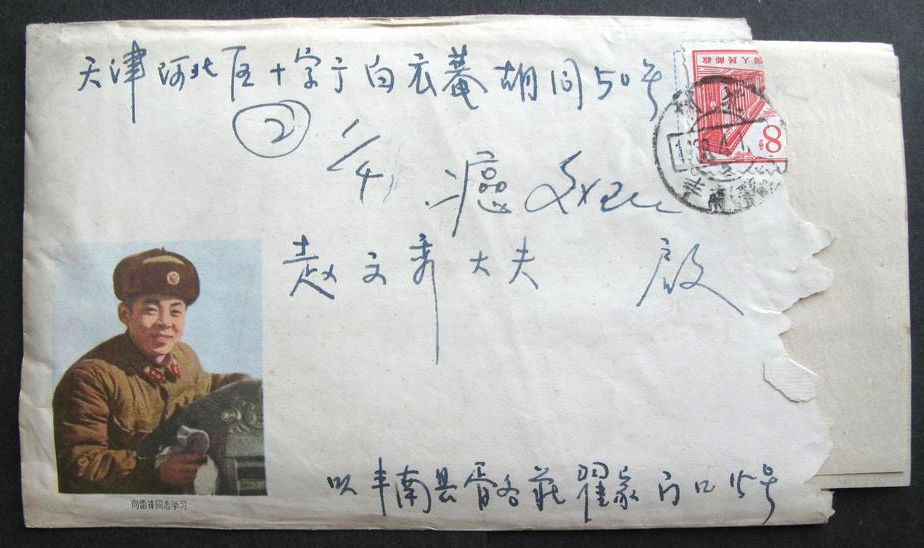 天津河北区十字于白衣菴胡同50号
2
1/4
癌
赵文秀大夫 启
丰南县胥各莊翟家门口15号
向雷锋同志学习
国人民邮政
8